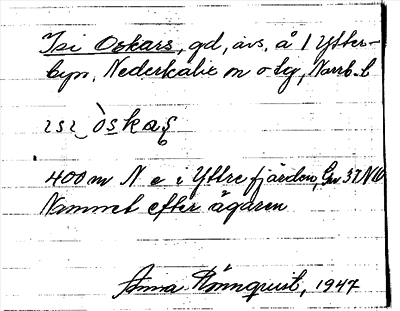 Isi Oskars, gd, avs. å 1 Ytter-
byn, Nederkalix sn o tg, Norrb. l
ısı òskaʂ
400 m N e i Yttrefjärden, Gn 37 NW
Namnet efter ägaren
Anna Rönnquist, 1947